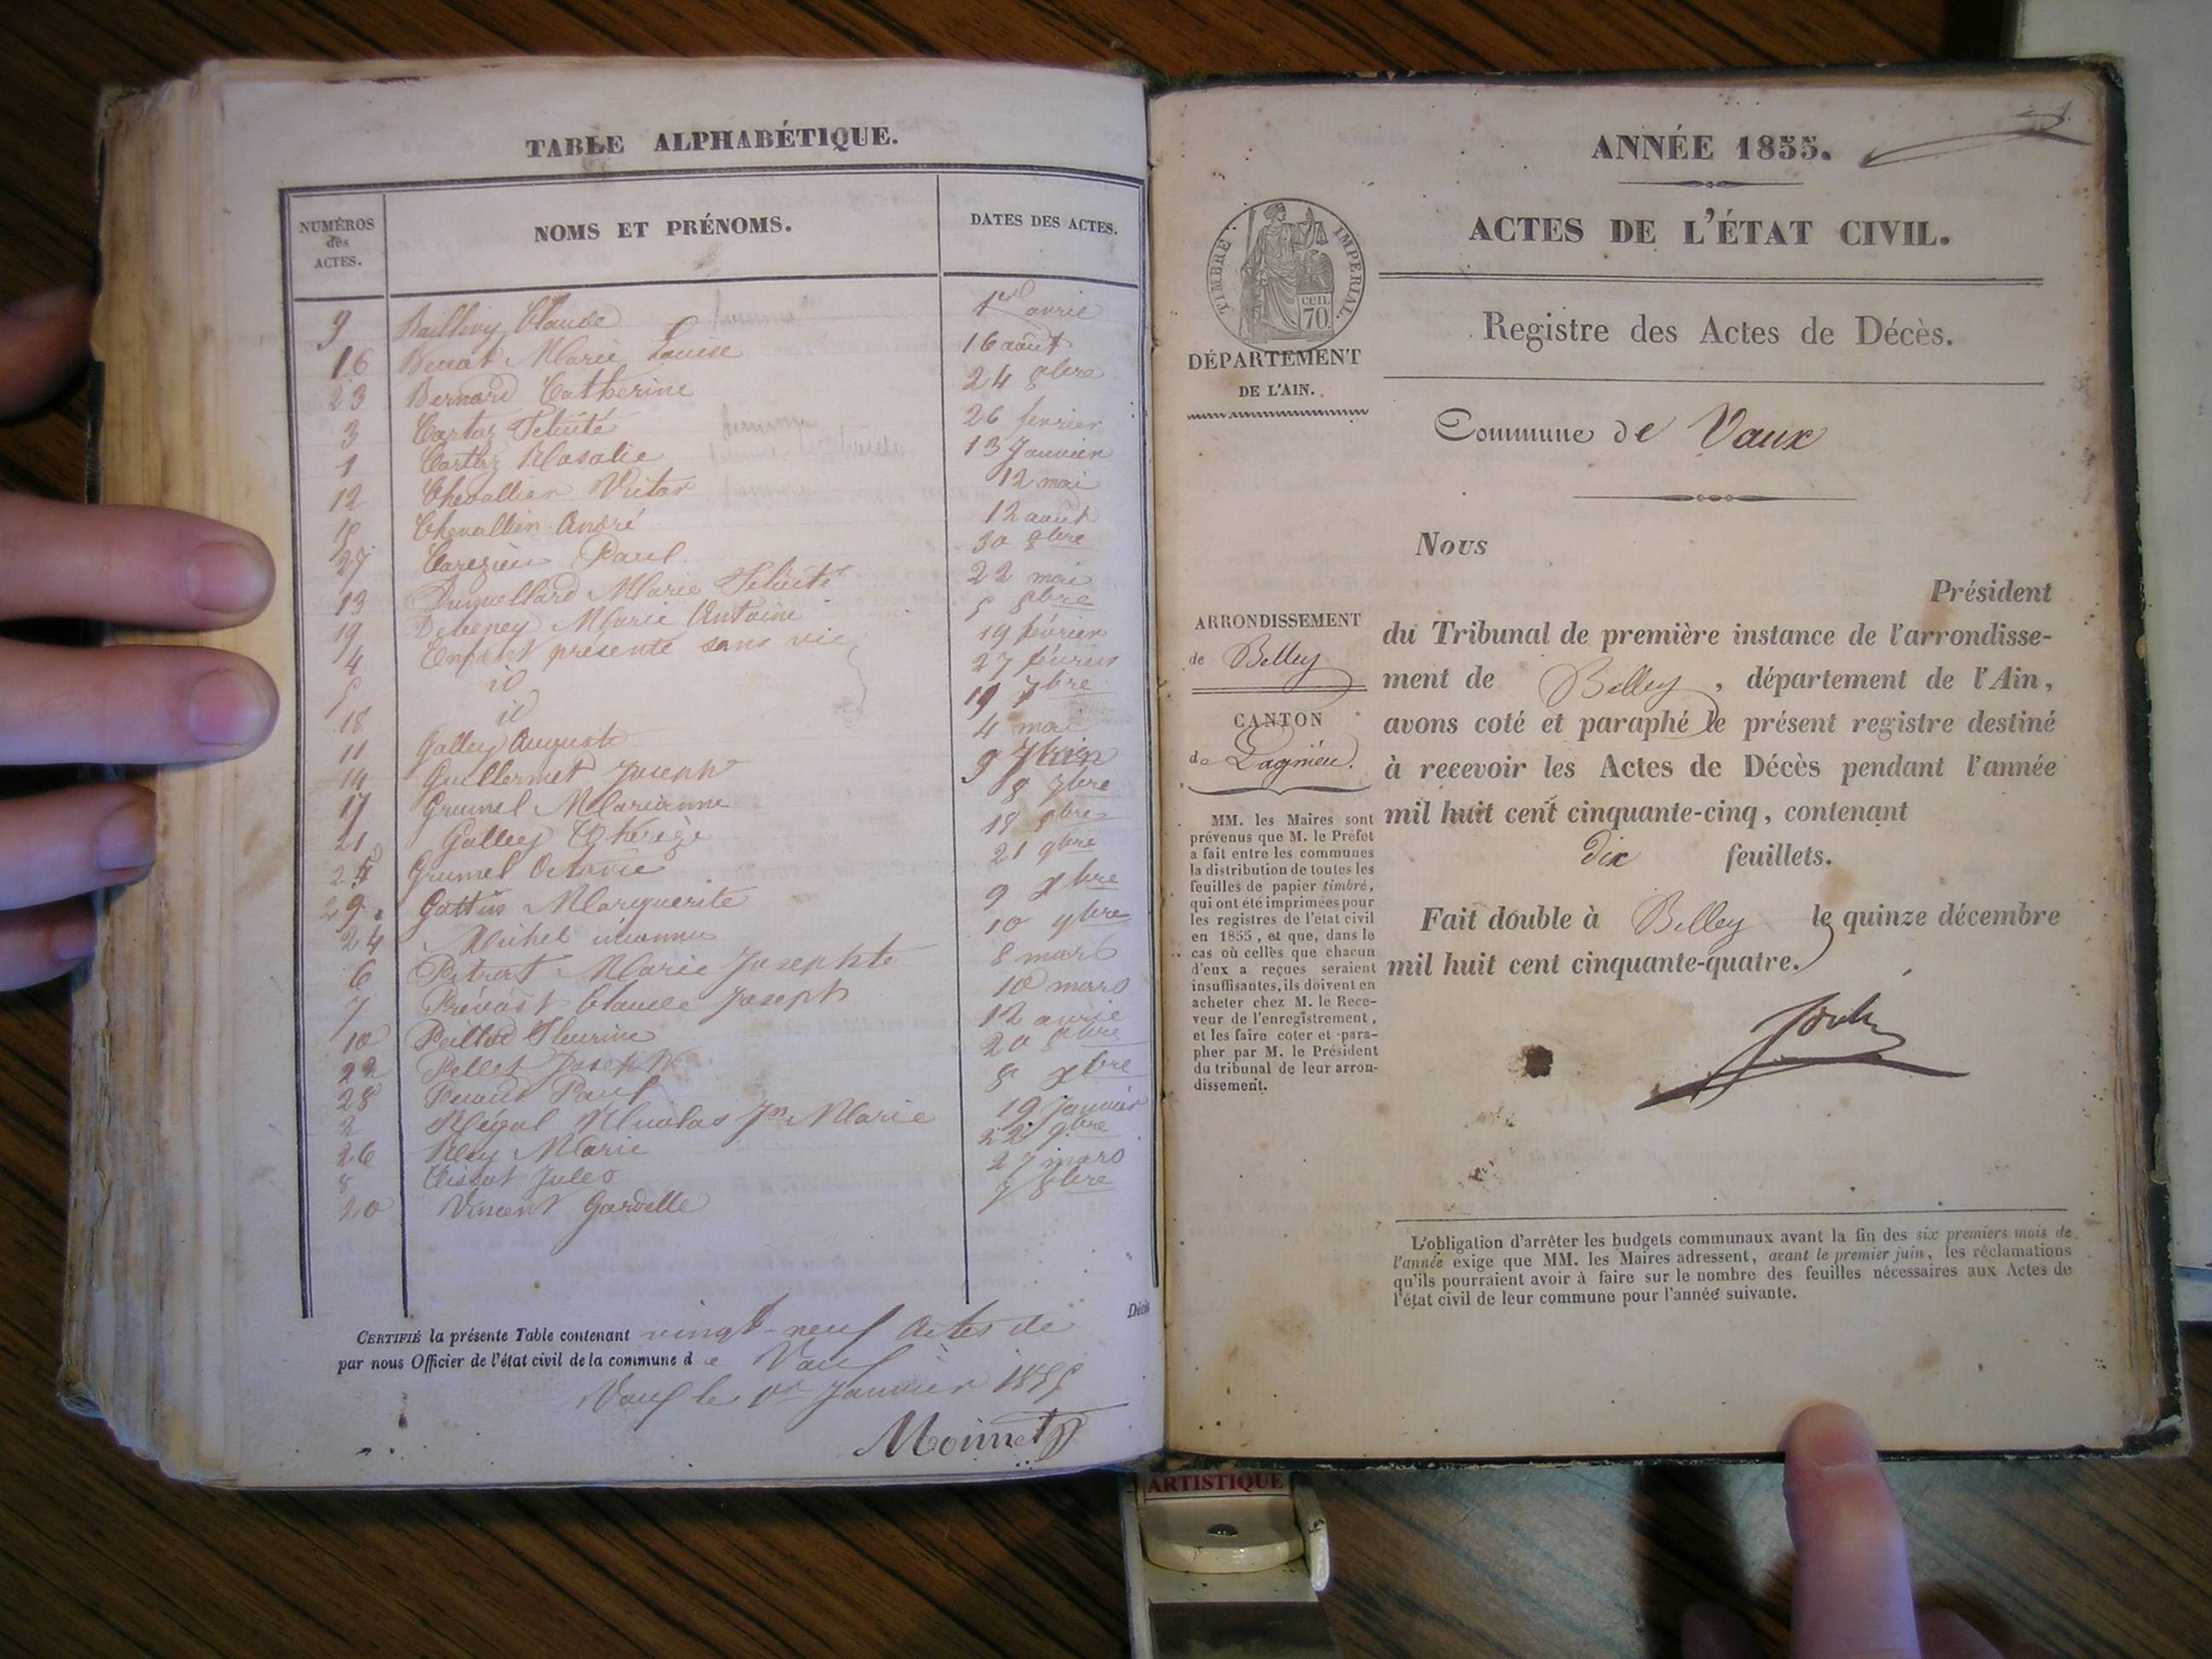 TABLE ALPHABÉTIQUE.
NUMÉROS des ACTES.
NOMS ET PRÉNOMS.
DATES DES ACTES.
9 Claude 1er avril
16 Marie Louise 16 août
23 Bernard Catherine 24 8bre
3 Cartaz Félicité 26 fevrier
1 Rosalie 13 Janvier
12 Chevallier Victor 12 mai
Chevallier André 12 août
27 Paul 30 9bre
13 Marie Félicité 22 mai
19 Debeney Marie Antoine 5 8bre
4 Enfant présenté sans vie 19 février
5 id 27 février
18 id 19 7bre
11 Galley Auguste 4 mai
14 Guillermet Joseph 9
17 Grumel Marianne 8 7bre
21 Galley Thérèze 18 8bre
25 Grumel Octavie 21 9bre
29 Marguerite 9 Xbre
24 Michel inconnu 10 9bre
6 Marie Josephte 8 mars
7 Prévost Claude Joseph 10 mars
10 Fleurine 12 avril
22 Pellet Joseph 20 8bre
28 Paul 8 Xbre
2 Nicolas Jn Marie 19 janvier
26 Rey Marie 22 9bre
8 Tissot Jules 27 mars
20 Vincent Gardelle 7 8bre
Décès
CERTIFIÉ la présente Table contenant vingt-neuf Actes de
par nous Officier de l'état civil de la commune d e Vaux
Vaux le 1er Janvier 1855
Monnet
ANNÉE 1855.
ACTES DE L'ÉTAT CIVIL.
TIMBRE IMPÉRIAL.
cen.
70.
DÉPARTEMENT
DE L'AIN.
Registre des Actes de Décès.
Commune de Vaux
Nous
Président
ARRONDISSEMENT
de Belley
CANTON
de Lagnieu.
du Tribunal de première instance de l'arrondisse-
ment de Belley, département de l'Ain,
avons coté et paraphé le présent registre destiné
à recevoir les Actes de Décès pendant l'année
mil huit cent cinquante-cinq, contenant
dix feuillets.
Fait double à Belley le quinze décembre
mil huit cent cinquante-quatre.
MM. les Maires sont
prévenus que M. le Préfet
a fait entre les communes
la distribution de toutes les
feuilles de papier timbré,
qui ont été imprimées pour
les registres de l'état civil
en 1855, et que, dans le
cas où celles que chacun
d'eux a reçues seraient
insuffisantes, ils doivent en
acheter chez M. le Rece-
veur de l'enregistrement,
et les faire coter et para-
pher par M. le Président
du tribunal de leur arron-
dissement.
L'obligation d'arrêter les budgets communaux avant la fin des six premiers mois de
l'année exige que MM. les Maires adressent, avant le premier juin, les réclamations
qu'ils pourraient avoir à faire sur le nombre des feuilles nécessaires aux Actes de
l'état civil de leur commune pour l'année suivante.
ARTISTIQUE